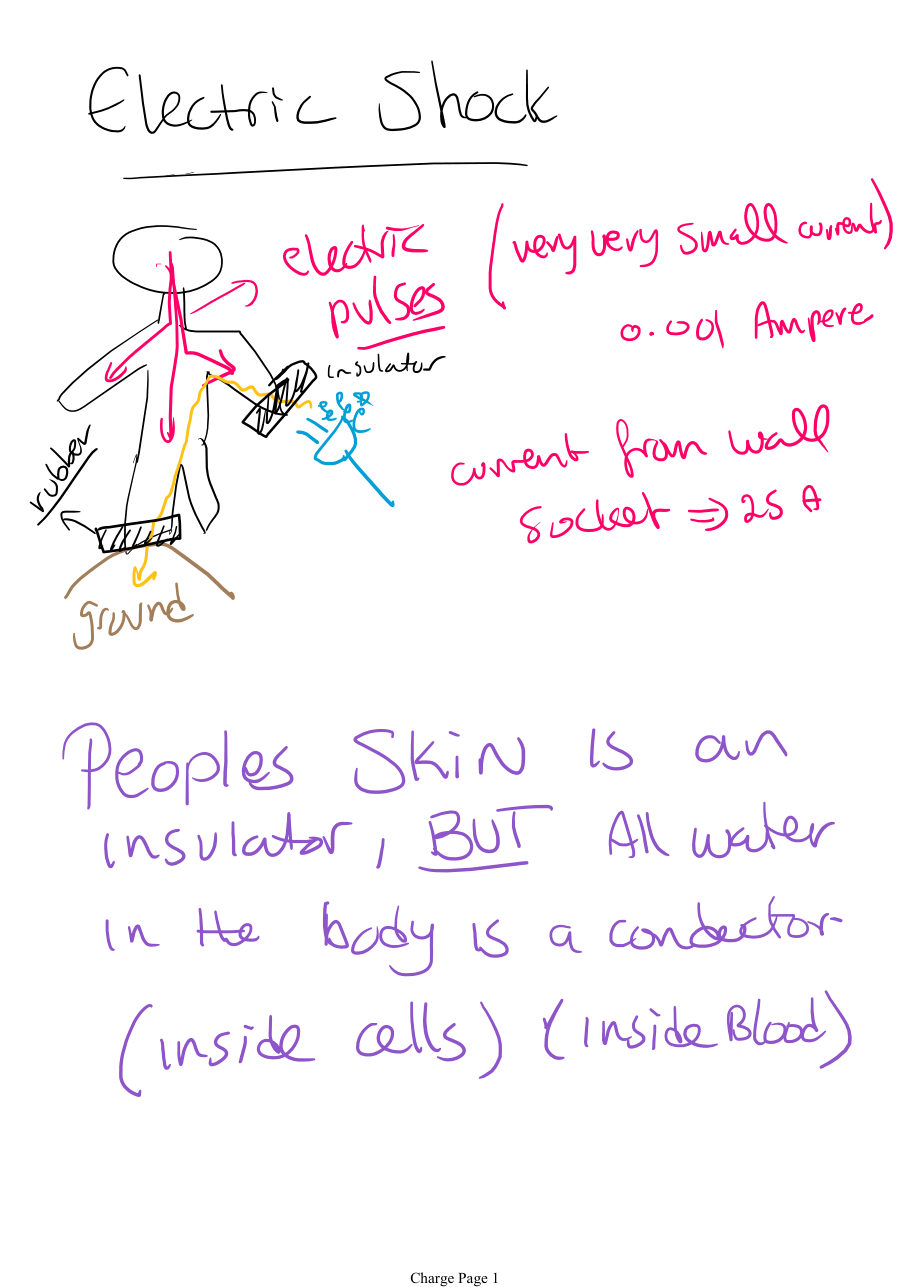 Electric Shock
electric
pulses
(very very small current)
0.001 Ampere
insulator
current from wall
socket ⇒ 25 A
rubber
ground
Peoples Skin is an
insulator, BUT All water
in the body is a conductor
(inside cells) (inside Blood)
Charge Page 1